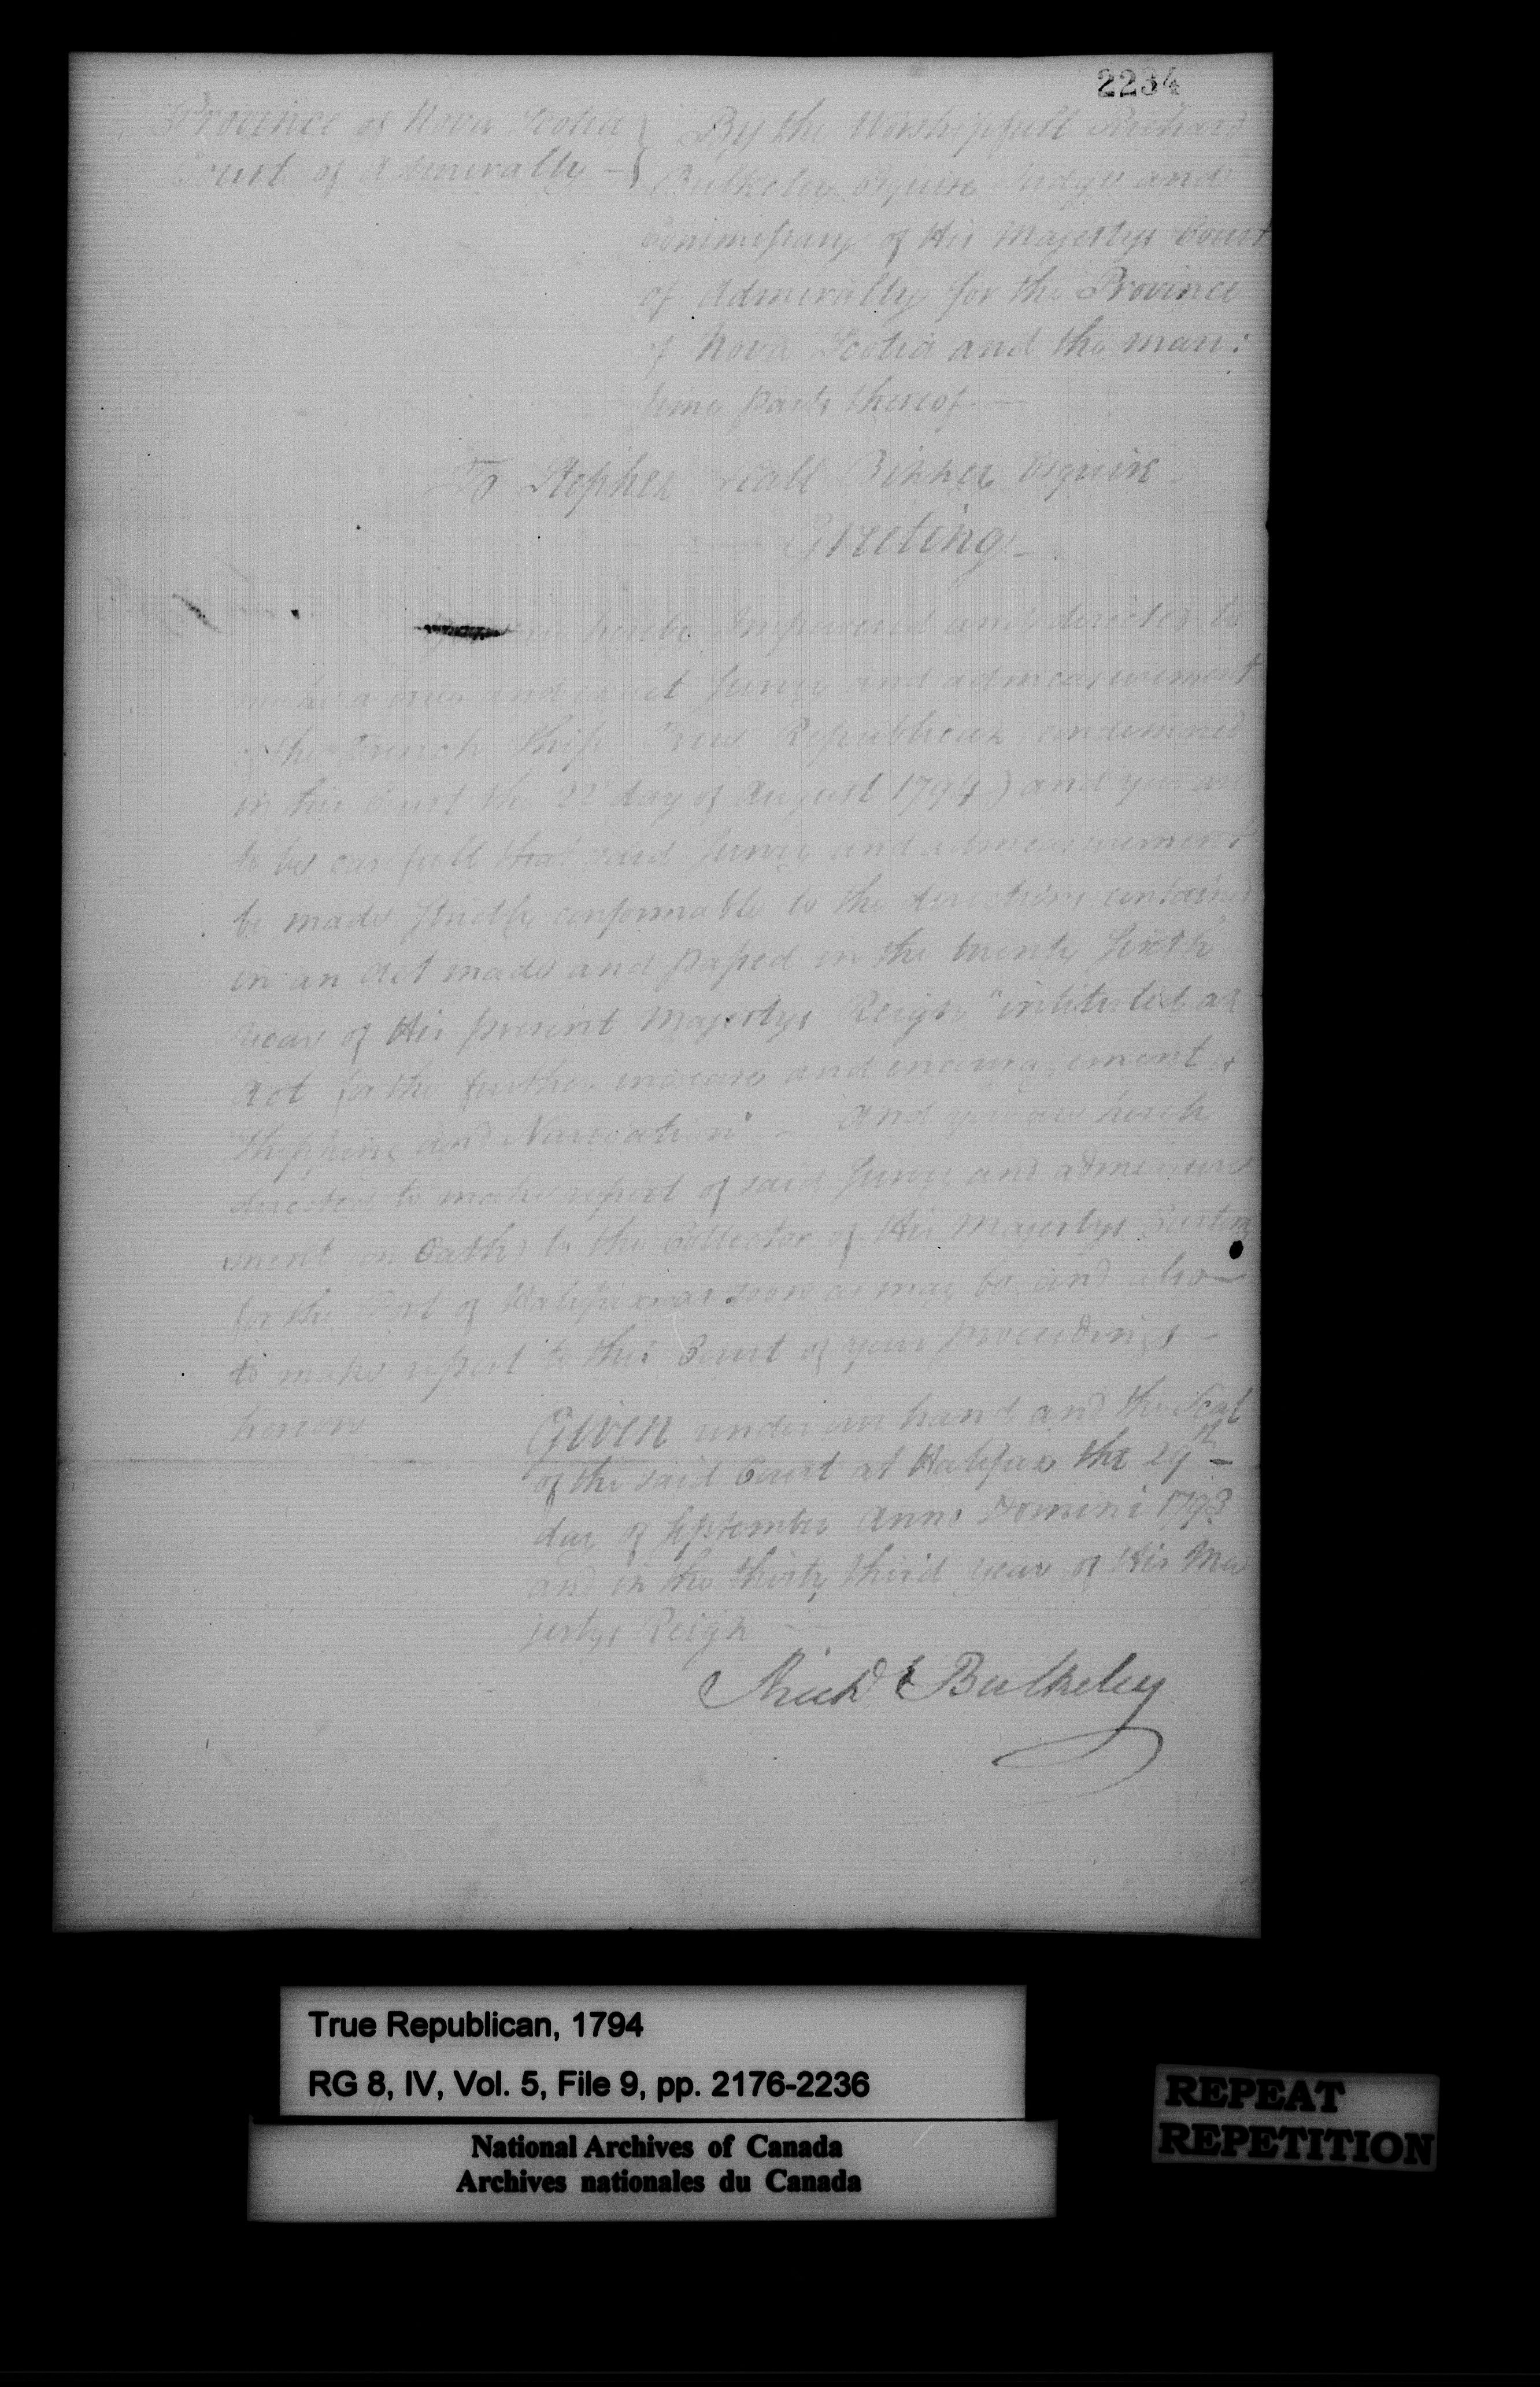 2234
Province of Nova Scotia } By the Worshipfull Richard
Court of Admiralty - } Bulkeley Esquire Judge and
Commissary of His Majestys Court
of Admiralty for the Province
of Nova Scotia and the mari:
time parts thereof
To Stephen Hall Binney Esquire -
Greeting -
You are hereby Impowered and directed to
make a true and exact Survey and admeasurement
of the French Ship True Republican (condemned
in this Court the 22d day of August 1794) and you are
to be carefull that said Survey and admeasurement
be made Strictly conformable to the directions contained
in an Act made and passed in the twenty Sixth
year of His present Majestys Reign "intituled an
Act for the further increase and encouragement of
Shipping and Navigation" - And you are hereby
directed to make report of said Survey and admeasure
ment (on Oath) to the Collector of His Majestys Customs
for the Port of Halifax as soon as may be, and also
to make report to this Court of your proceedings -
hereon
Given under my hand and the Seal
of the said Court at Halifax the 29th
day of September Anno Domini 1793
and in the thirty third year of His Ma
jestys Reign
Richd Bulkeley
True Republican, 1794
RG 8, IV, Vol. 5, File 9, pp. 2176-2236
National Archives of Canada
Archives nationales du Canada
REPEAT
REPETITION